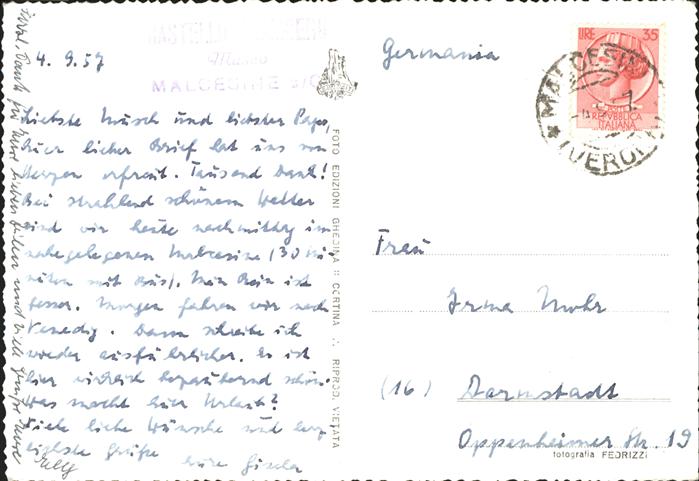 4. 9. 57
CASTELLO
Museo
MALCESINE S/G
Liebste Musch und liebster Papa,
Euer lieber Brief hat uns von
Herzen erfreut. Tausend Dank!
Bei strahlend schönem Wetter
sind wir heute nachmittag im
nahegelegenen Malcesine (30 Mi-
nuten mit Bus). Mein Bein ist
besser. Morgen fahren wir nach
Venedig. Dann schreibe ich
wieder ausführlicher. Es ist
hier wirklich bezaubernd schön.
Was macht euer Urlaub?
Viele liebe Wünsche und herz-
lichste Grüße
Eure Gisela
Dank für Eure lieben Zeilen und viele Grüße Euer
Rolf
FOTO EDIZIONI GHEDINA :: CORTINA :: RIPROD. VIETATA
Germania
LIRE 35
REPVBBLICA
ITALIANA
MALCESINE
(VERONA)
Frau
Irma Mohr
(16) Darmstadt
Oppenheimer Str. 19
fotografia FEDRIZZI